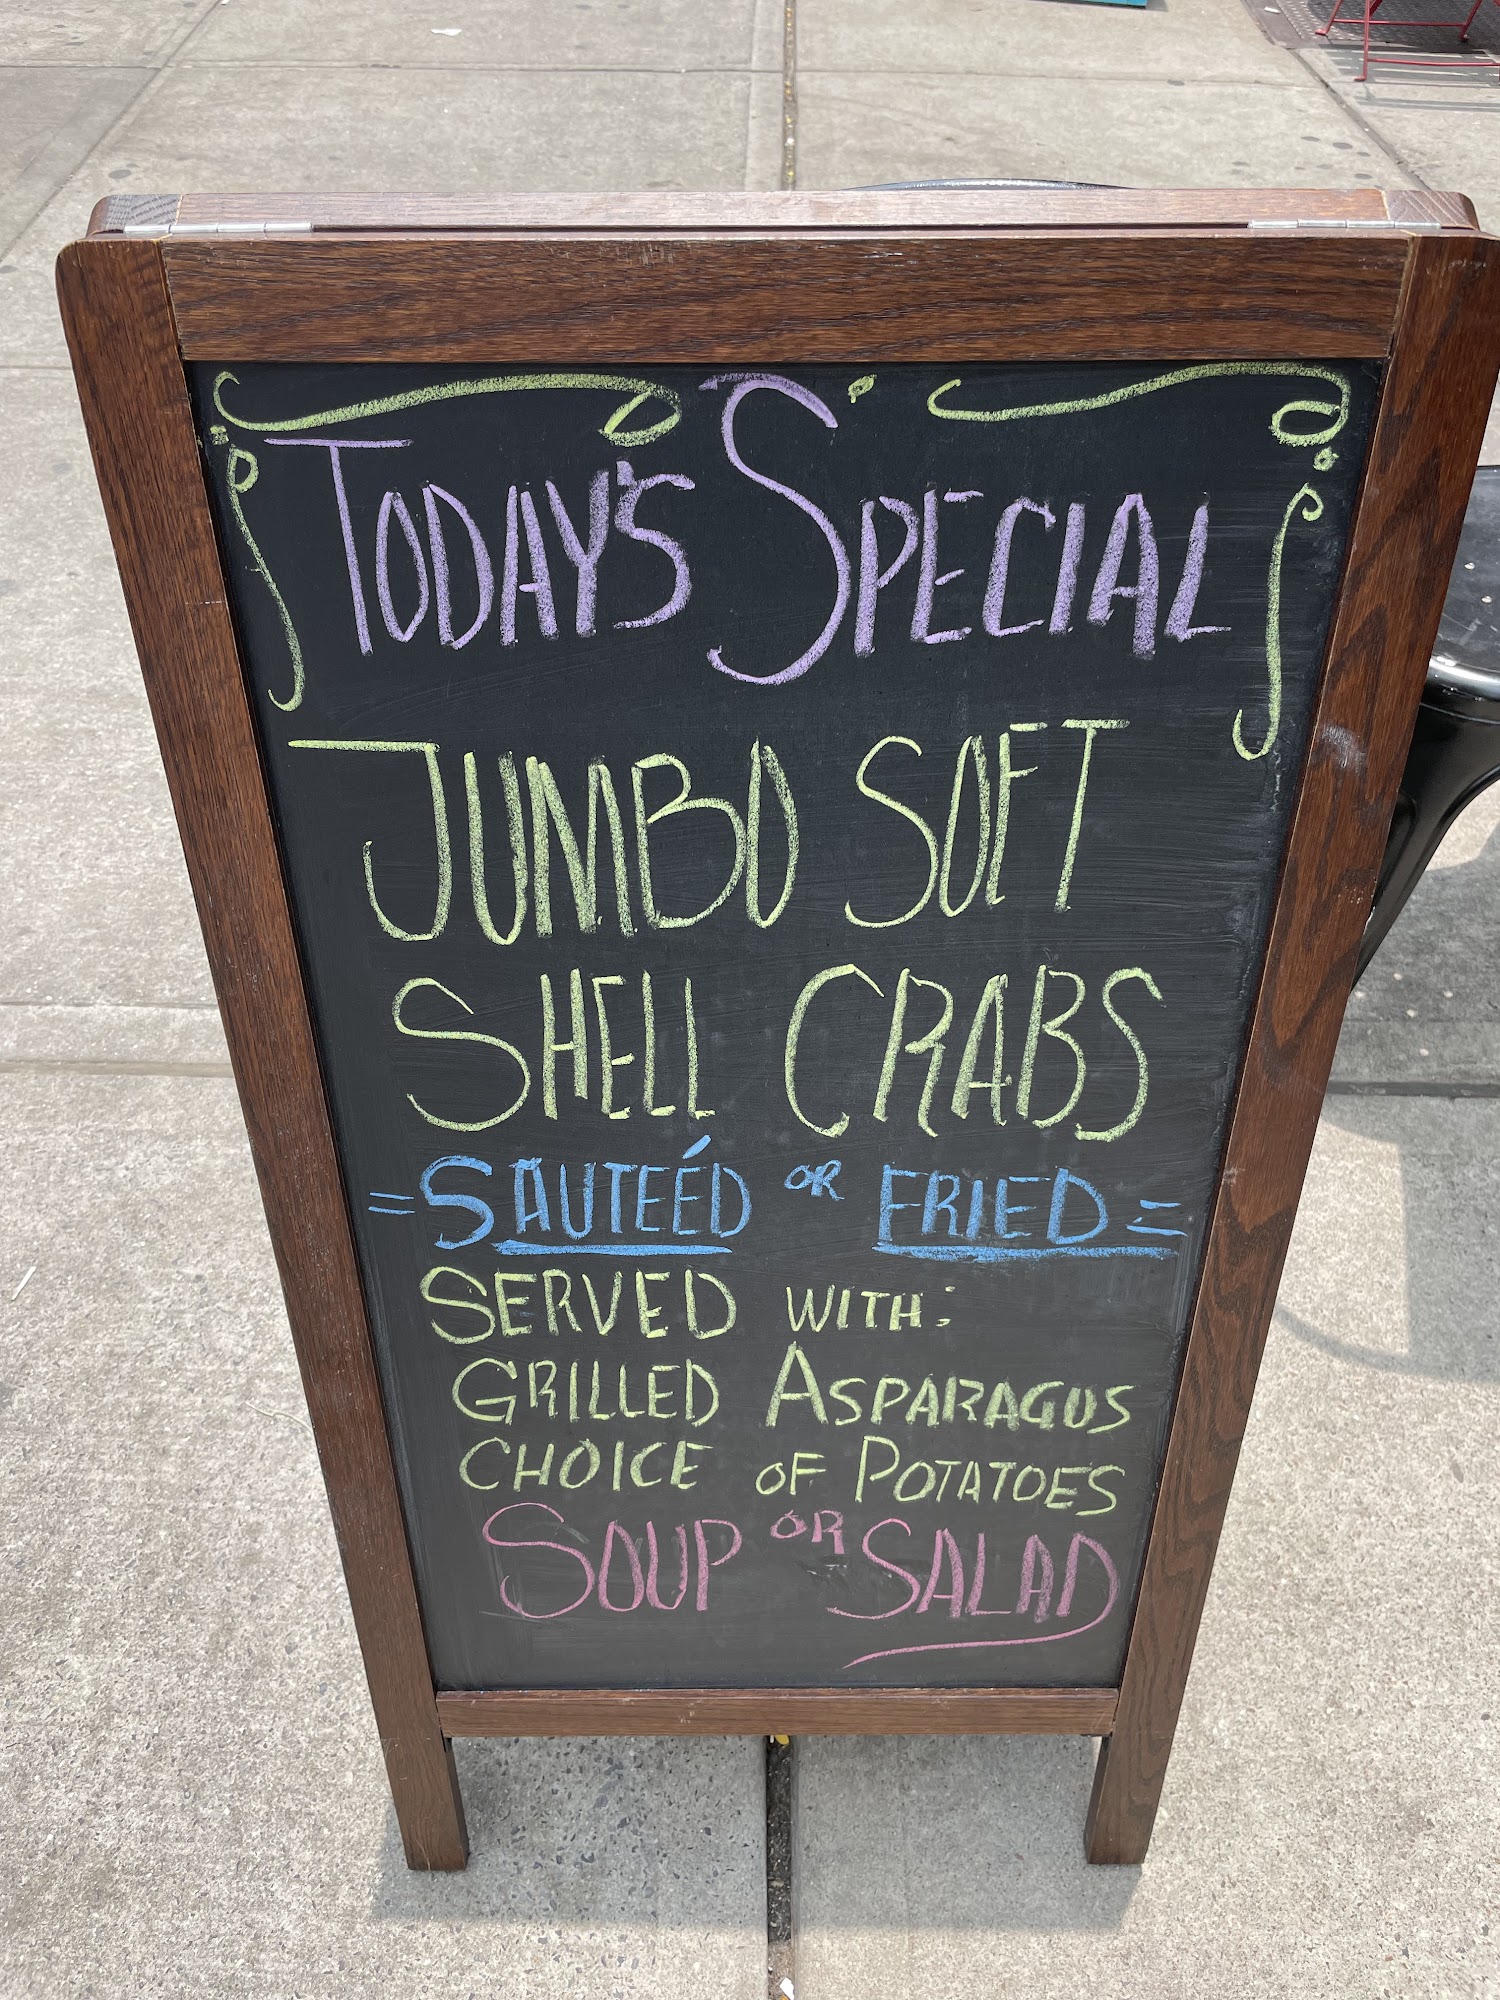 TODAY'S SPECIAL
JUMBO SOFT
SHELL CRABS
= SAUTEÉD OR FRIED =
SERVED WITH:
GRILLED ASPARAGUS
CHOICE OF POTATOES
SOUP OR SALAD